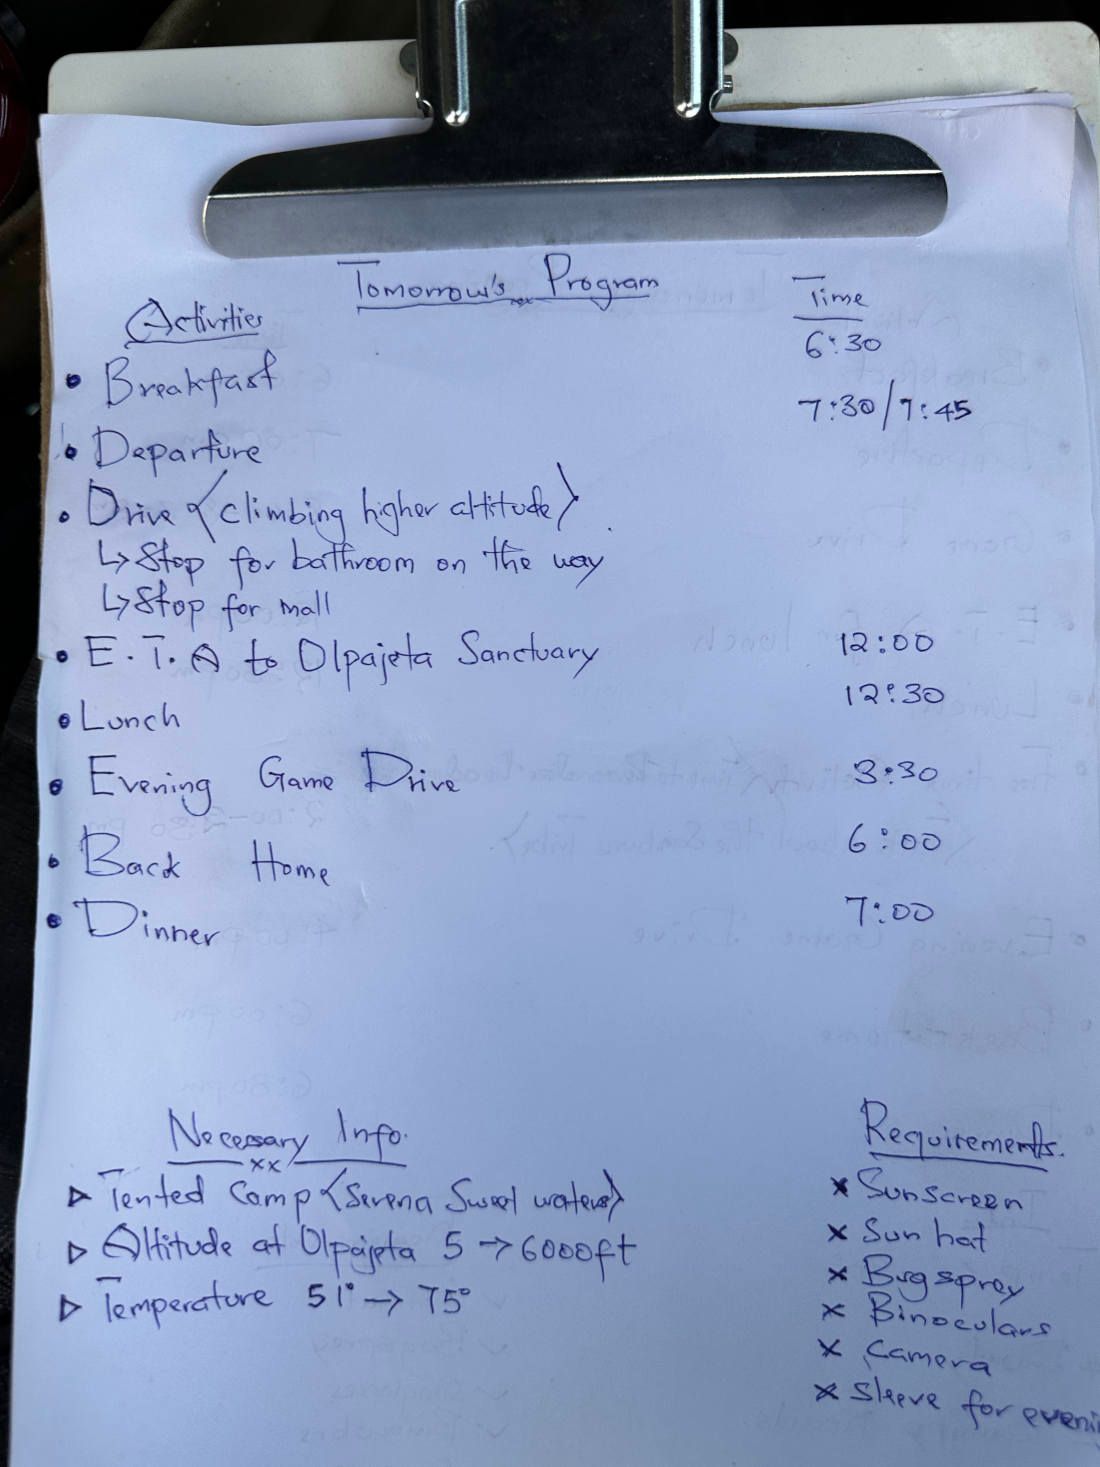 Tomorrow's Program
Activities
Time
• Breakfast 6:30
• Departure 7:30/7:45
• Drive <climbing higher altitude>
↳ Stop for bathroom on the way
↳ Stop for mall
• E.T.A to Olpajeta Sanctuary 12:00
• Lunch 12:30
• Evening Game Drive 3:30
• Back Home 6:00
• Dinner 7:00
Necessary Info.
xx
▷ Tented Camp <Serena Sweet waters>
▷ Altitude at Olpajeta 5 → 6000ft
▷ Temperature 51° → 75°
Requirements.
x Sunscreen
x Sun hat
x Bug sprey
x Binoculars
x Camera
x Sleeve for eveni